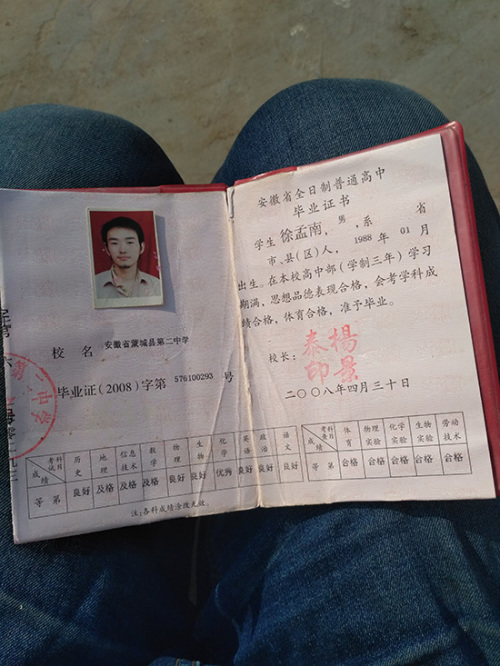 校 名 安徽省蒙城县第二中学
毕业证(2008)字第 576100293 号
考试科目 成绩 历史 地理 信息技术 数学 物理 生物 化学 英语 政治 语文
等 第 良好 及格 及格 及格 良好 良好 优秀 良好 良好 良好
注:各科成绩涂改无效。
安徽省全日制普通高中
毕业证书
学生 徐孟南, 男 ,系 省
市、县(区)人, 1988 年 01 月
出生。在本校高中部(学制三年)学习
期满,思想品德表现合格,会考学科成
绩合格,体育合格,准予毕业。
校长:
秦楊
印景
二〇〇八年四月三十日
考查科目 成绩 体育 物理实验 化学实验 生物实验 劳动技术
等 第 合格 合格 合格 合格 合格